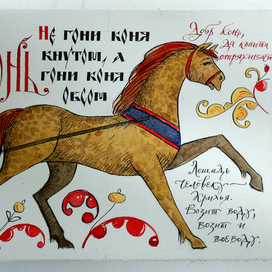 Не гони коня
кнутом, а
гони коня
овсом
онь
Добр конь,
да копыта
Лошадь
человеку
крылья.
Возит воду,
возит и
воеводу.